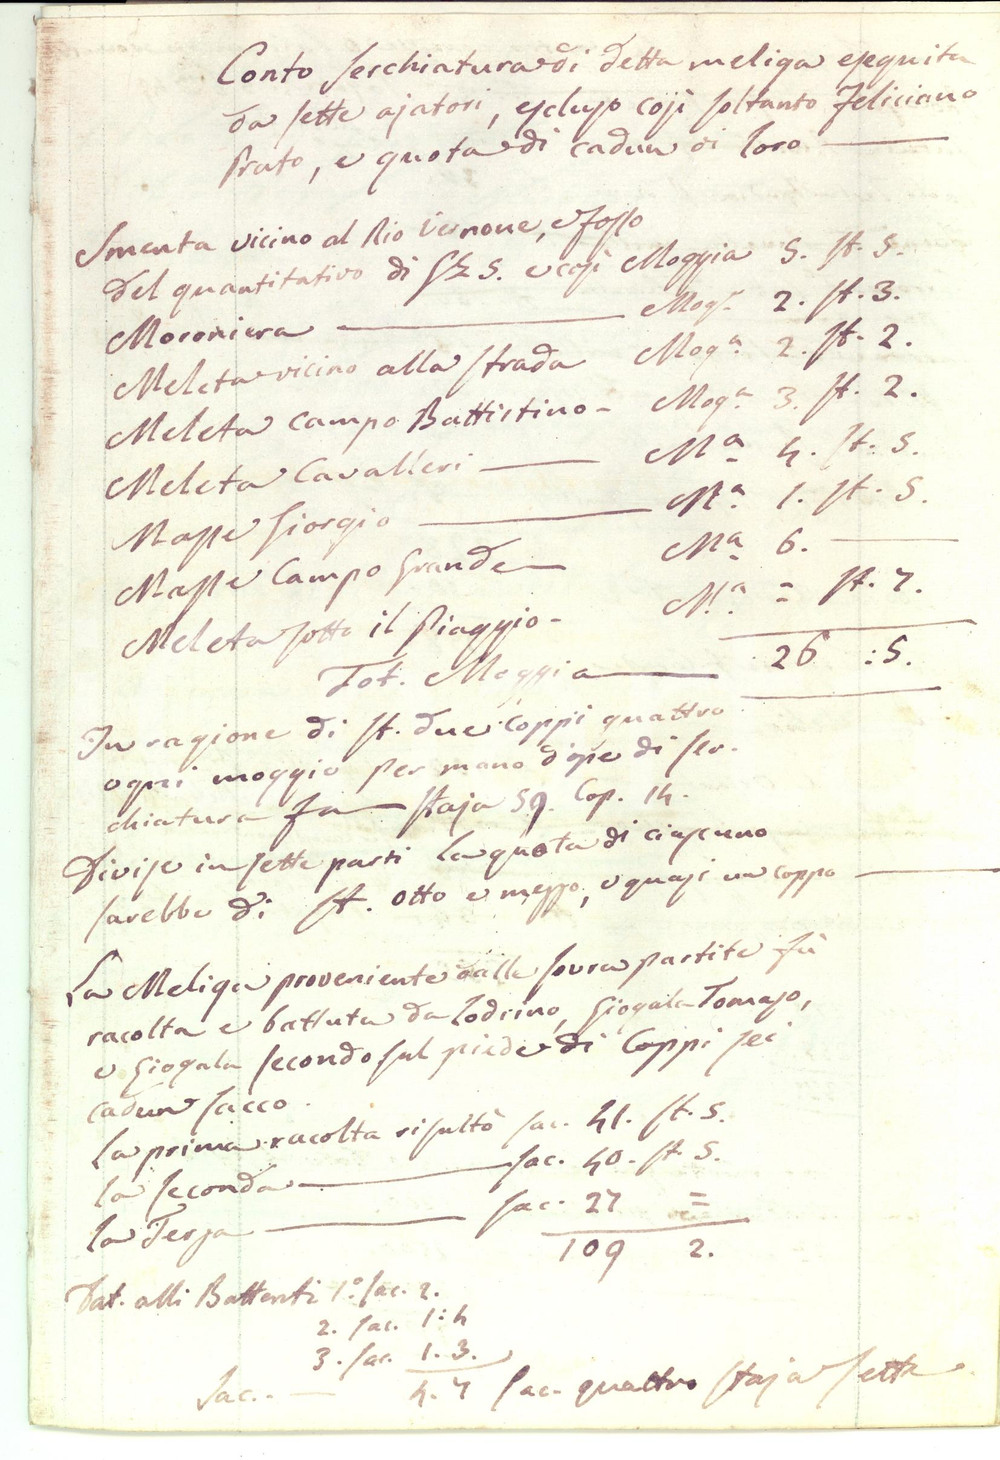 Conto serchiatura di detta meliga eseguita
da sette ajatori, escluso così soltanto Feliciano
Prato, e quota di cadun di loro
Smenta vicino al Rio Vernone, e fosso
del quantitativo di st. 5. e così Moggia 5. st. 5.
Moroniera Mog.a 2. st. 3.
Meleta vicino alla strada Mog.a 2. st. 2.
Meleta Campo Battistino - Mog.a 3. st. 2.
Meleta Cavalleri M.a 4. st. 5.
Masse Giorgio M.a 1. st. 5.
Masse Campo Grande M.a 6.
Meleta sotto il Piaggio - M.a = st. 7.
Tot. Moggia 26 : 5.
In ragione di st. due coppi quattro
ogni moggio per mano d'ope di ser-
chiatura fa staja 59. Cop. 14.
Divise in sette parti la quota di ciascuno
sarebbe di st. otto e mezzo, e quasi un coppo
La Meliga proveniente dalle sovra partite fù
racolta e battuta da Lodrino, Giogala Tomaso,
e Giogala secondo sul piede di Coppi sei
cadun sacco.
la prima racolta risultò sac. 41. st. 5.
la seconda sac. 40. st. 5.
la Terza sac. 27 =
109 2.
Dat. alli Battenti 1.° sac. 2.
2. sac. 1:4
3. sac. 1. 3.
Sac. - 4. 7 Sac. quattro staja sette